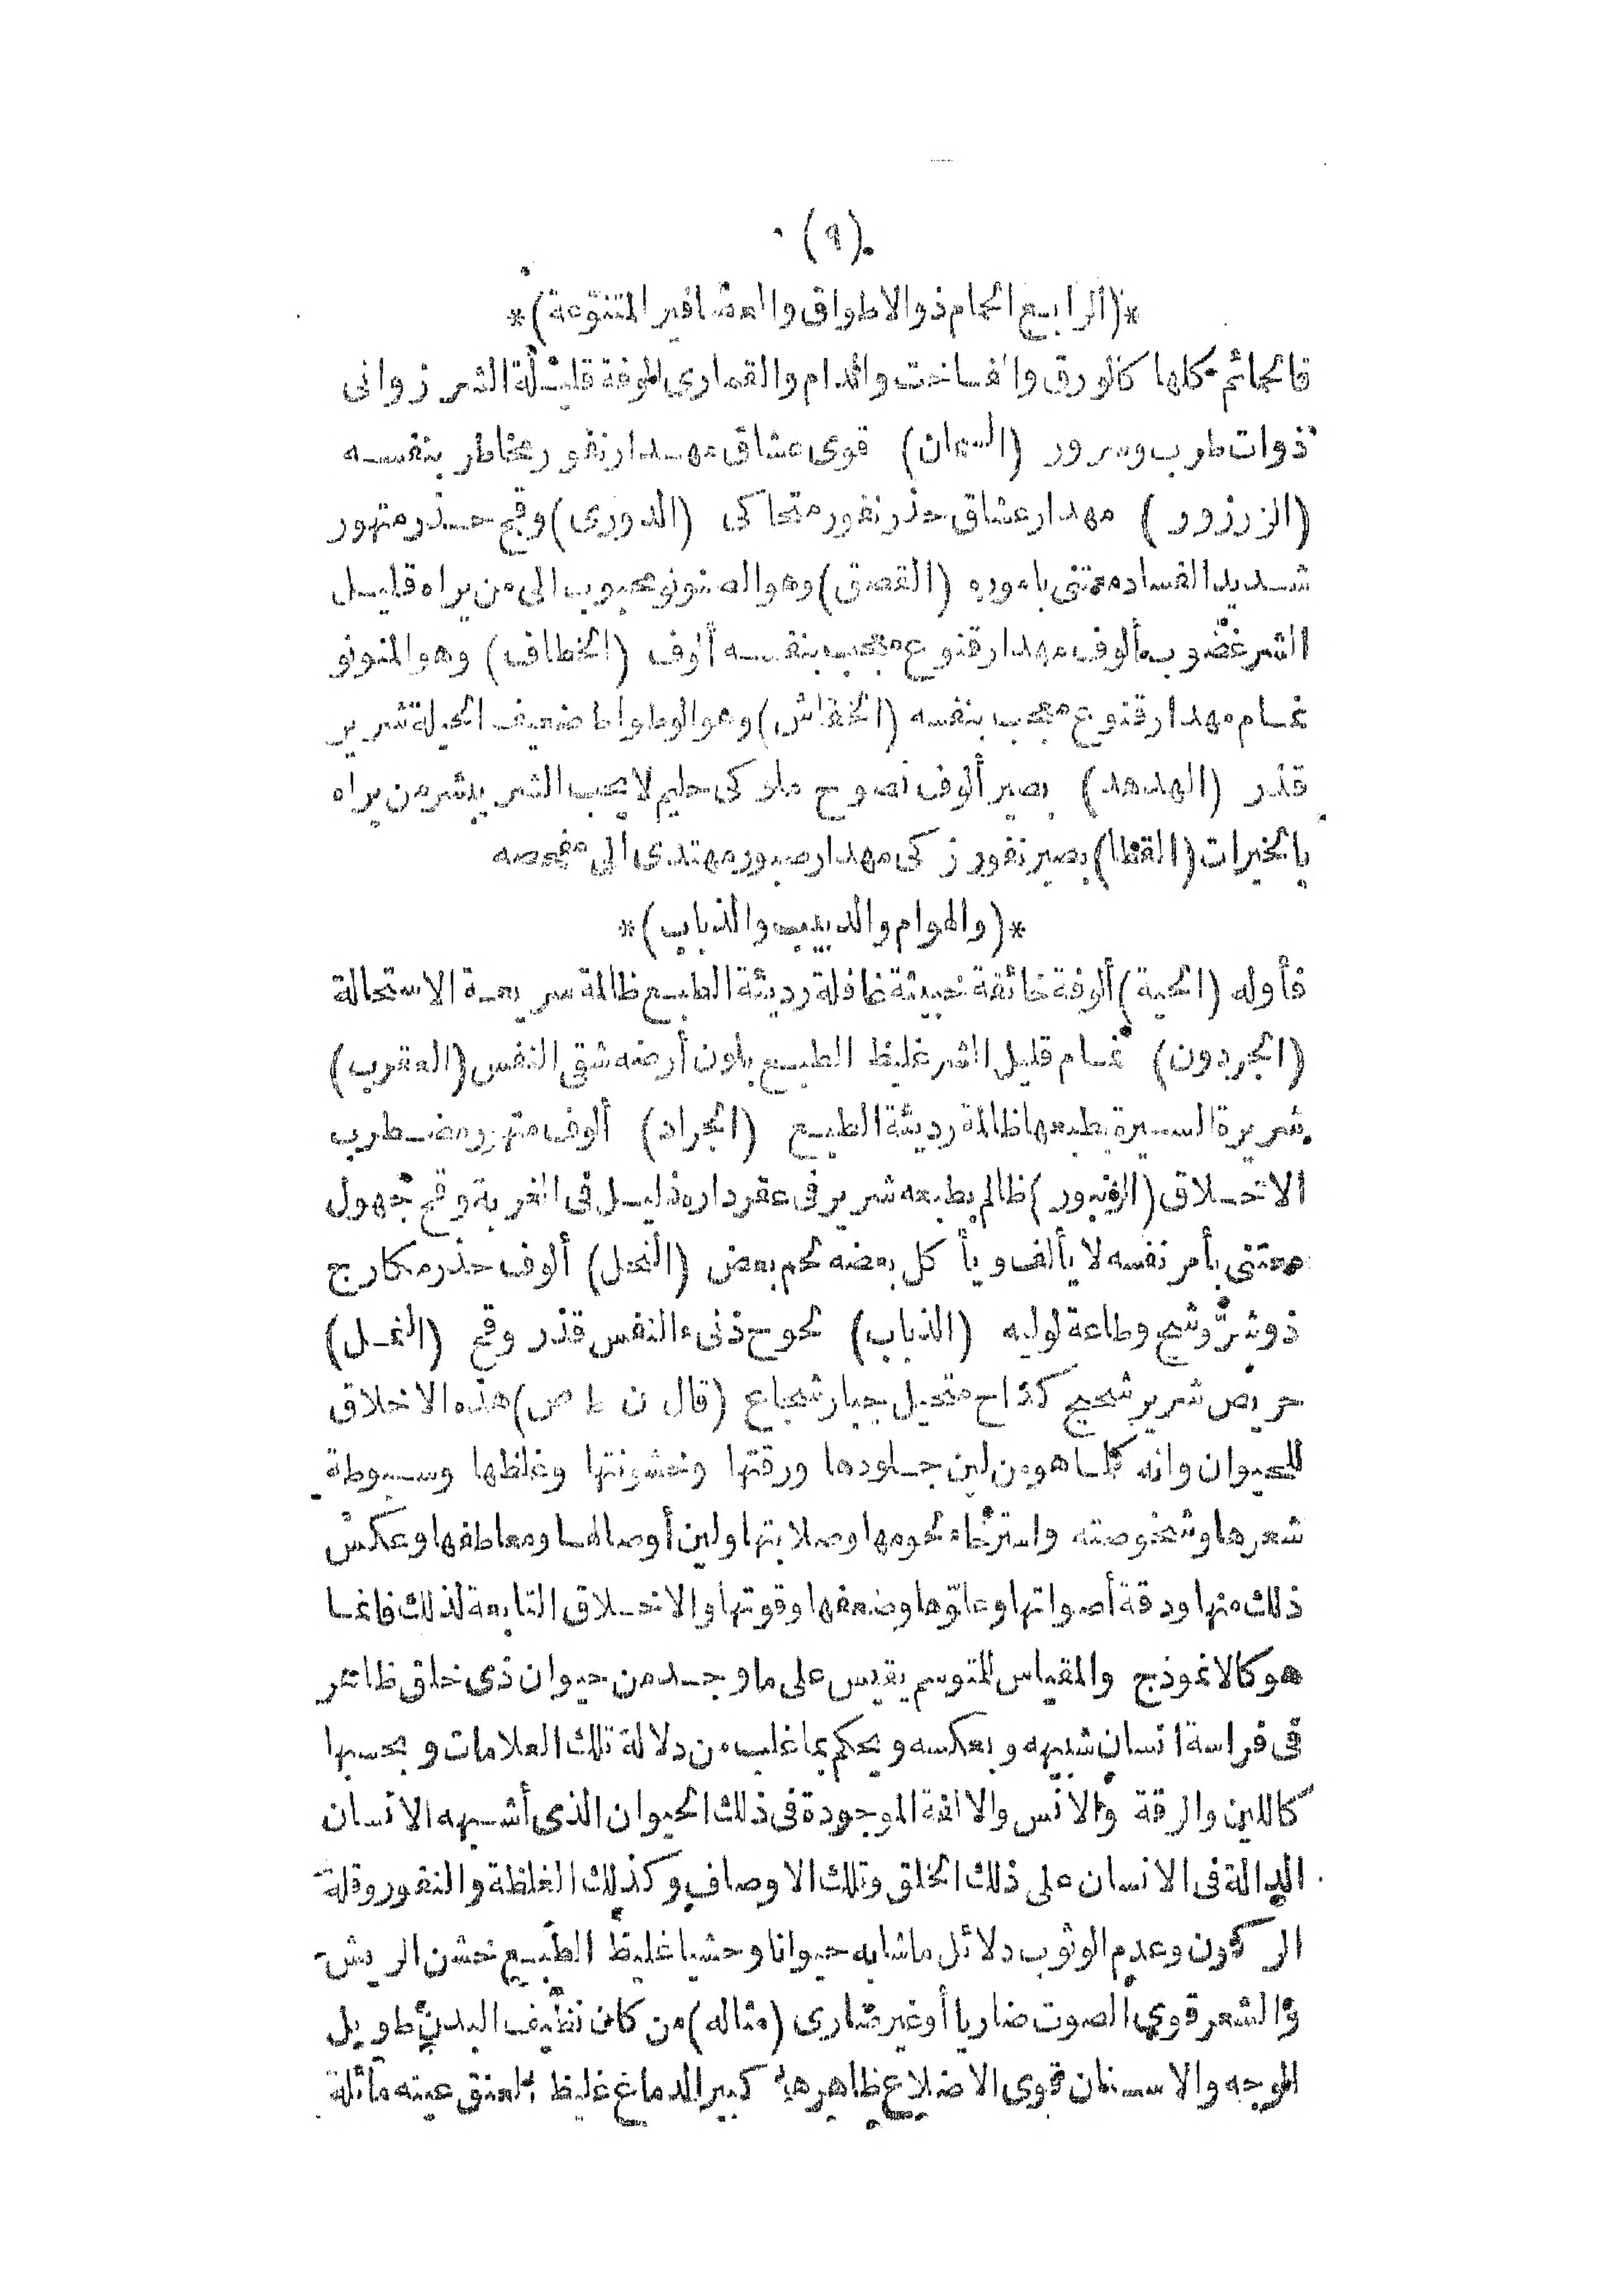 (٩)
*(الرابع الحمام ذو الاطواق والعصافير المتنوّعة)*
فالحمائم كلها كالورق والفاخت واليمام والقمارى الموفة قليلة الشر زوانى
ذوات طرب وسرور (السمان) قوى عشاق مهدار نفور مخاطر بنفسه
(الزرزور) مهدار عشاق حذر نفور متحاكى (الدورى) وقح حذر متهور
شديد الفساد معتنى باموره (القصق) وهو الصنونو محبوب الى من يراه قليل
الشر غضوب مألوف مهدار قنوع معجب بنفسه ألوف (الخطاف) وهو المنونو
نمام مهدار قنوع معجب بنفسه (الخفاش) وهو الوطواط ضعيف الحيلة شرير
قذر (الهدهد) بصير ألوف نصوح ملوكى حليم لا يحب الشر يبشر من يراه
بالخيرات (القطا) بصير نفور زكى مهدار صبور مهتدى الى مفحصه
*(والهوام والدبيب والذباب)*
فأوله (الحية) ألوفة خائفة خبيثة غافلة رديئة الطبع ظالمة سريعة الاستحالة
(الجردون) نمام قليل الشر غليظ الطبع بلون أرضه شقى النفس (العقرب)
شريرة السيرة بطبعها ظالمة رديئة الطبع (الجراد) ألوف متهور مضطرب
الاخلاق (الزنبور) ظالم بطبعه شرير فى عقر داره ذليل فى الغربة وقح جهول
معتنى بأمر نفسه لا يألف ويأكل بعضه لحم بعض (النحل) ألوف حذر مكارج
ذو شرّ وشح وطاعة لوليه (الذباب) لحوح دنىء النفس قذر وقح (النمل)
حريص شرير شحيح كدّاح متحيل جبار شجاع (قال ن ط ص) هذه الاخلاق
للحيوان وانه كلما هو من لين جلودها ورقتها وخشونتها وغلظها وسبوطة
شعرها وشخوصته واسترخاء لحومها وصلابتها ولين أوصالها ومعاطفها وعكس
ذلك منها ودقة أصواتها وعلوّها وضعفها وقوتها والاخلاق التابعة لذلك فانما
هو كالانموذج والمقياس للمتوسم يقيس على ما وجد من حيوان ذى خلق ظاهر
فى فراسة انسان شبيهه وبعكسه ويحكم بما غلب من دلالة تلك العلامات وبحسبها
كاللين والرقة والانس والالفة الموجودة فى ذلك الحيوان الذى أشبهه الانسان
الدالة فى الانسان على ذلك الخلق وتلك الاوصاف وكذلك الغلظة والنفور وقلة
الركون وعدم الوثوب دلائل ما شابه حيوانا وحشيا غليظ الطبع خشن الريش
والشعر قوى الصوت ضاريا أو غير ضارى (مثاله) من كان نظيف البدن طويل
الوجه والاسنان قوى الاضلاع ظاهرها كبير الدماغ غليظ العنق عينه مائلة